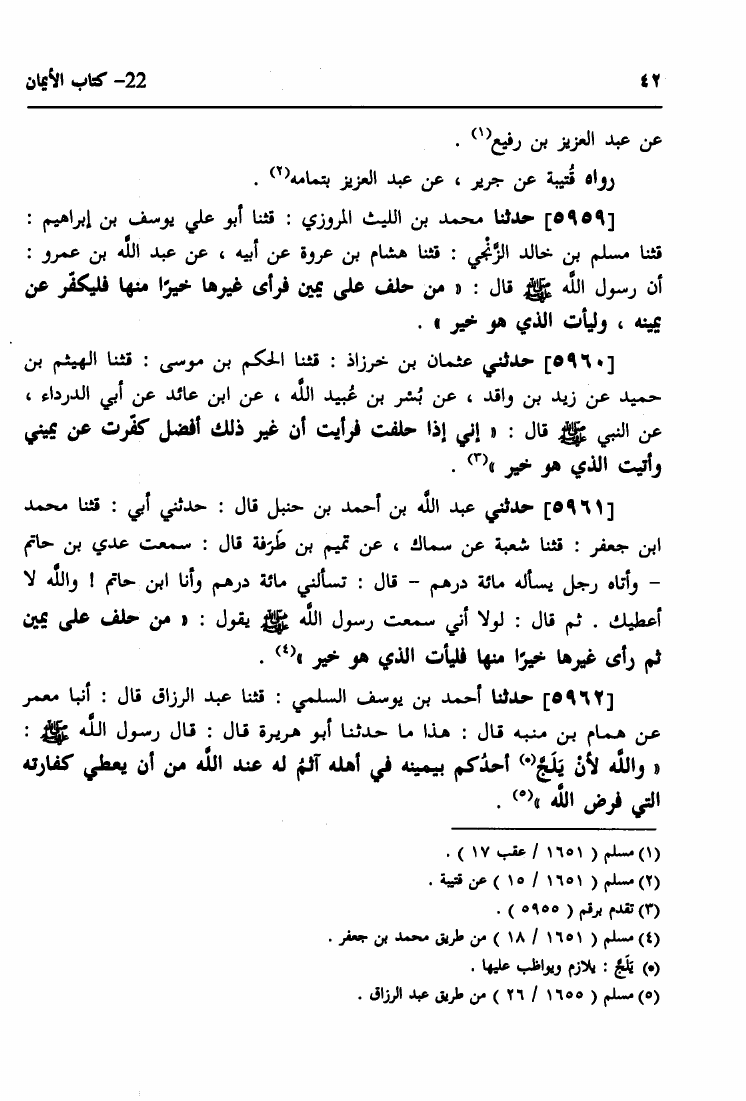 ٤٢ 22- كتاب الأيمان
عن عبد العزيز بن رفيع(١) .
رواه قُتيبة عن جرير ، عن عبد العزيز بتمامه(٢) .
[٥٩٥٩] حدثنا محمد بن الليث المروزي : قثنا أبو علي يوسف بن إبراهيم :
قثنا مسلم بن خالد الزَّنْجي : قثنا هشام بن عروة عن أبيه ، عن عبد اللَّه بن عمرو :
أن رسول اللَّه ﷺ قال : « من حلف على يمين فرأى غيرها خيرًا منها فليكفّر عن
يمينه ، وليأت الذي هو خير » .
[٥٩٦٠] حدثني عثمان بن خرزاذ : قثنا الحكم بن موسى : قثنا الهيثم بن
حميد عن زيد بن واقد ، عن بُسْر بن عُبيد اللَّه ، عن ابن عائد عن أبي الدرداء ،
عن النبي ﷺ قال : « إني إذا حلفت فرأيت أن غير ذلك أفضل كفّرت عن يميني
وأتيت الذي هو خير »(٣) .
[٥٩٦١] حدثني عبد اللَّه بن أحمد بن حنبل قال : حدثني أبي : قثنا محمد
ابن جعفر : قثنا شعبة عن سماك ، عن تميم بن طَرَفة قال : سمعت عدي بن حاتم
– وأتاه رجل يسأله مائة درهم – قال : تسألني مائة درهم وأنا ابن حاتم ! واللَّه لا
أعطيك . ثم قال : لولا أني سمعت رسول اللَّه ﷺ يقول : « من حلف على يمين
ثم رأى غيرها خيرًا منها فليأت الذي هو خير »(٤) .
[٥٩٦٢] حدثنا أحمد بن يوسف السلمي : قثنا عبد الرزاق قال : أنبا معمر
عن همام بن منبه قال : هذا ما حدثنا أبو هريرة قال : قال رسول اللَّه ﷺ :
« واللَّه لأنْ يَلَجَّ(*) أحدُكم بيمينه في أهله آثمُ له عند اللَّه من أن يعطي كفارته
التي فرض اللَّه »(٥) .
(١) مسلم ( ١٦٥١ / عقب ١٧ ) .
(٢) مسلم ( ١٦٥١ / ١٥ ) عن قتيبة .
(٣) تقدم برقم ( ٥٩٥٥ ) .
(٤) مسلم ( ١٦٥١ / ١٨ ) من طريق محمد بن جعفر .
(*) يَلَجَّ : يلازم ويواظب عليها .
(٥) مسلم ( ١٦٥٥ / ٢٦ ) من طريق عبد الرزاق .